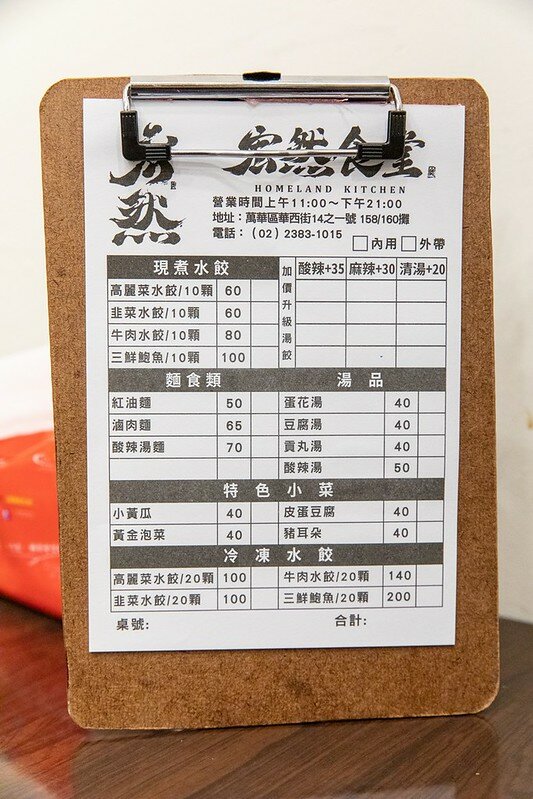 然
然食堂
HOMELAND KITCHEN
營業時間上午11:00～下午21:00
地址：萬華區華西街14之一號 158/160攤
電話：（02）2383-1015
□內用□外帶
現煮水餃
高麗菜水餃/10顆 60
韭菜水餃/10顆 60
牛肉水餃/10顆 80
三鮮鮑魚/10顆 100
加價升級湯餃
酸辣+35 麻辣+30 清湯+20
麵食類 湯品
紅油麵 50 蛋花湯 40
滷肉麵 65 豆腐湯 40
酸辣湯麵 70 貢丸湯 40
酸辣湯 50
特色小菜
小黃瓜 40 皮蛋豆腐 40
黃金泡菜 40 豬耳朵 40
冷凍水餃
高麗菜水餃/20顆 100 牛肉水餃/20顆 140
韭菜水餃/20顆 100 三鮮鮑魚/20顆 200
桌號: 合計: